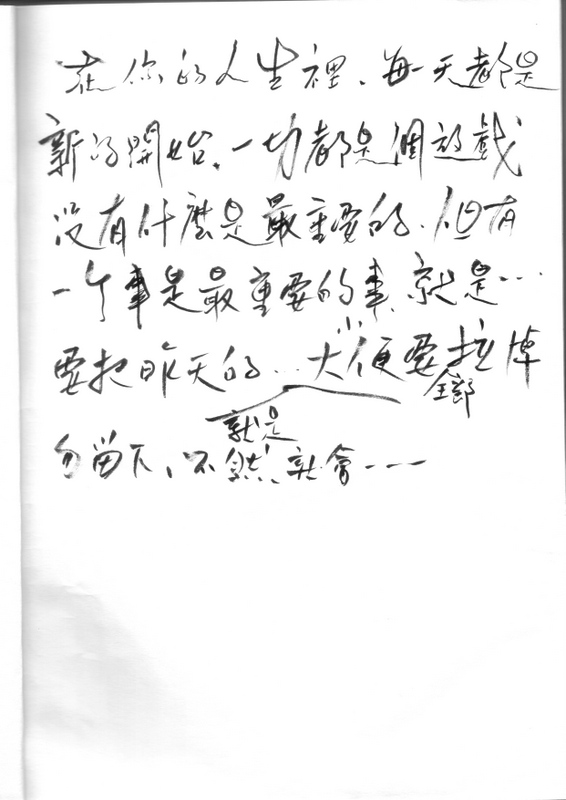 在你的人生裡、每一天都是
新的開始、一切都是個遊戲
沒有什麼是最重要的、但有
一个事是最重要的事、就是…
要把昨天的…大小便要拉掉
全部
就是
勿留下、不然、就會---